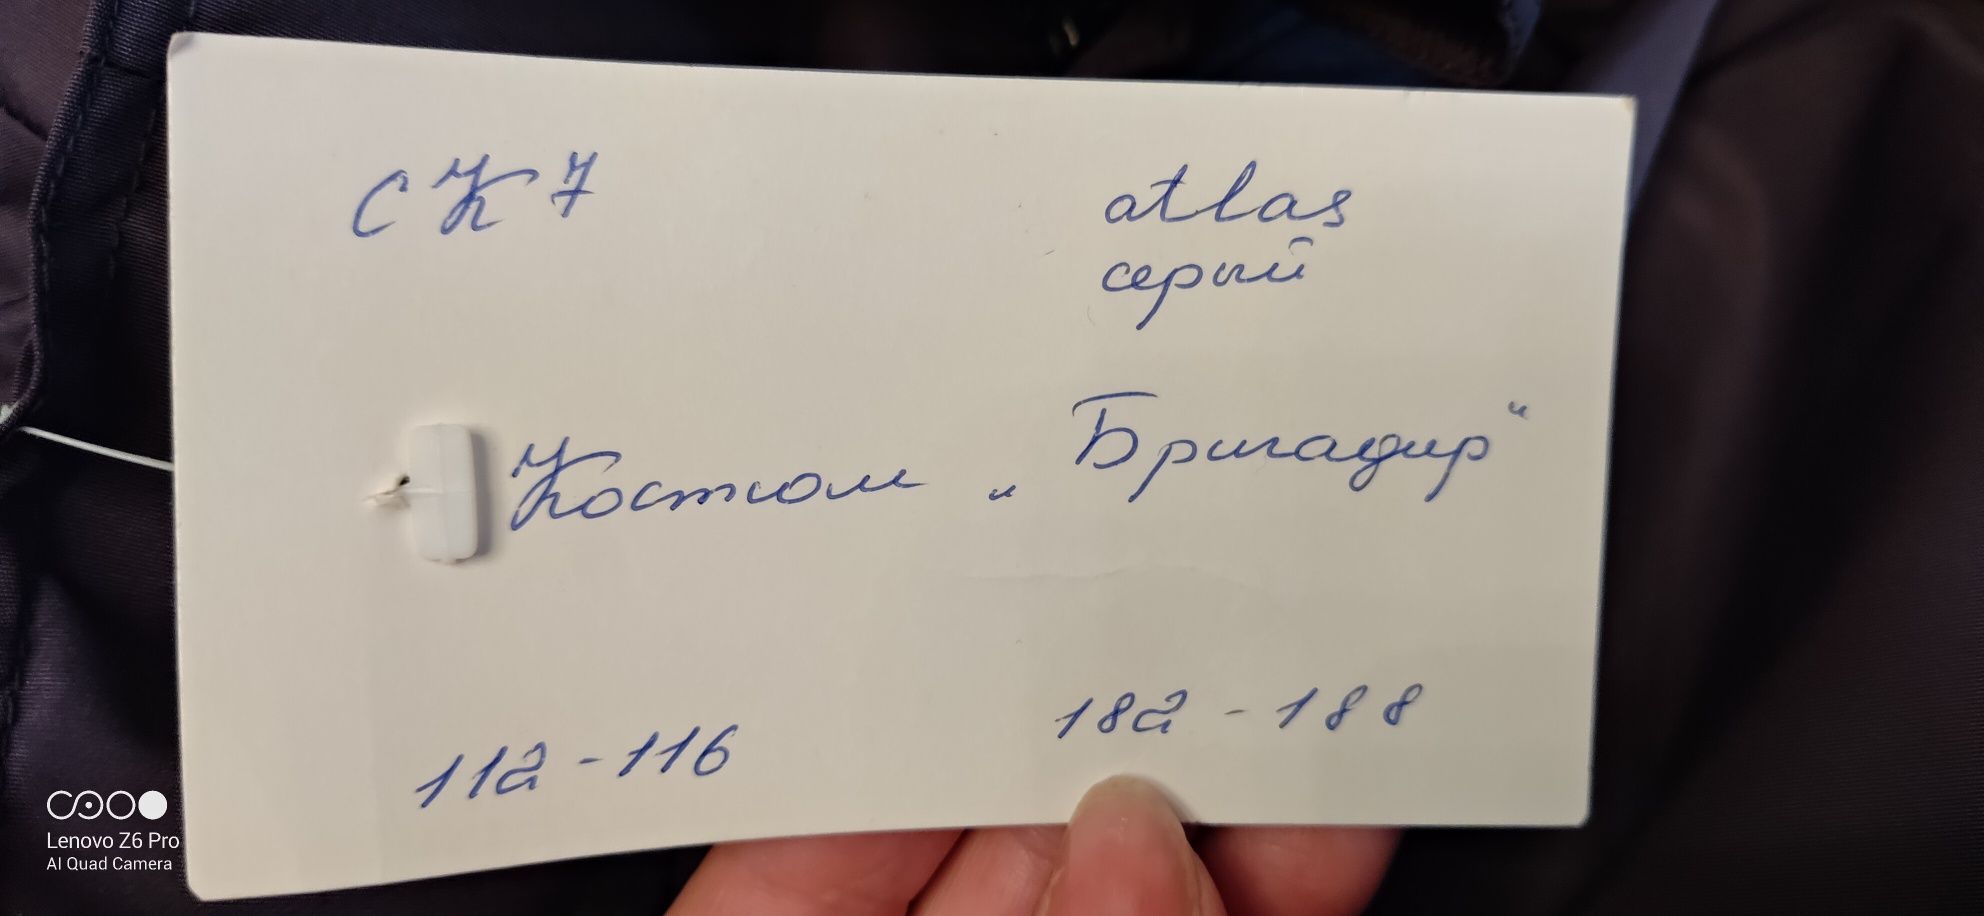 СК7
atlas
серый
Костюм „Бригадир"
112-116
182-188
Lenovo Z6 Pro
AI Quad Camera